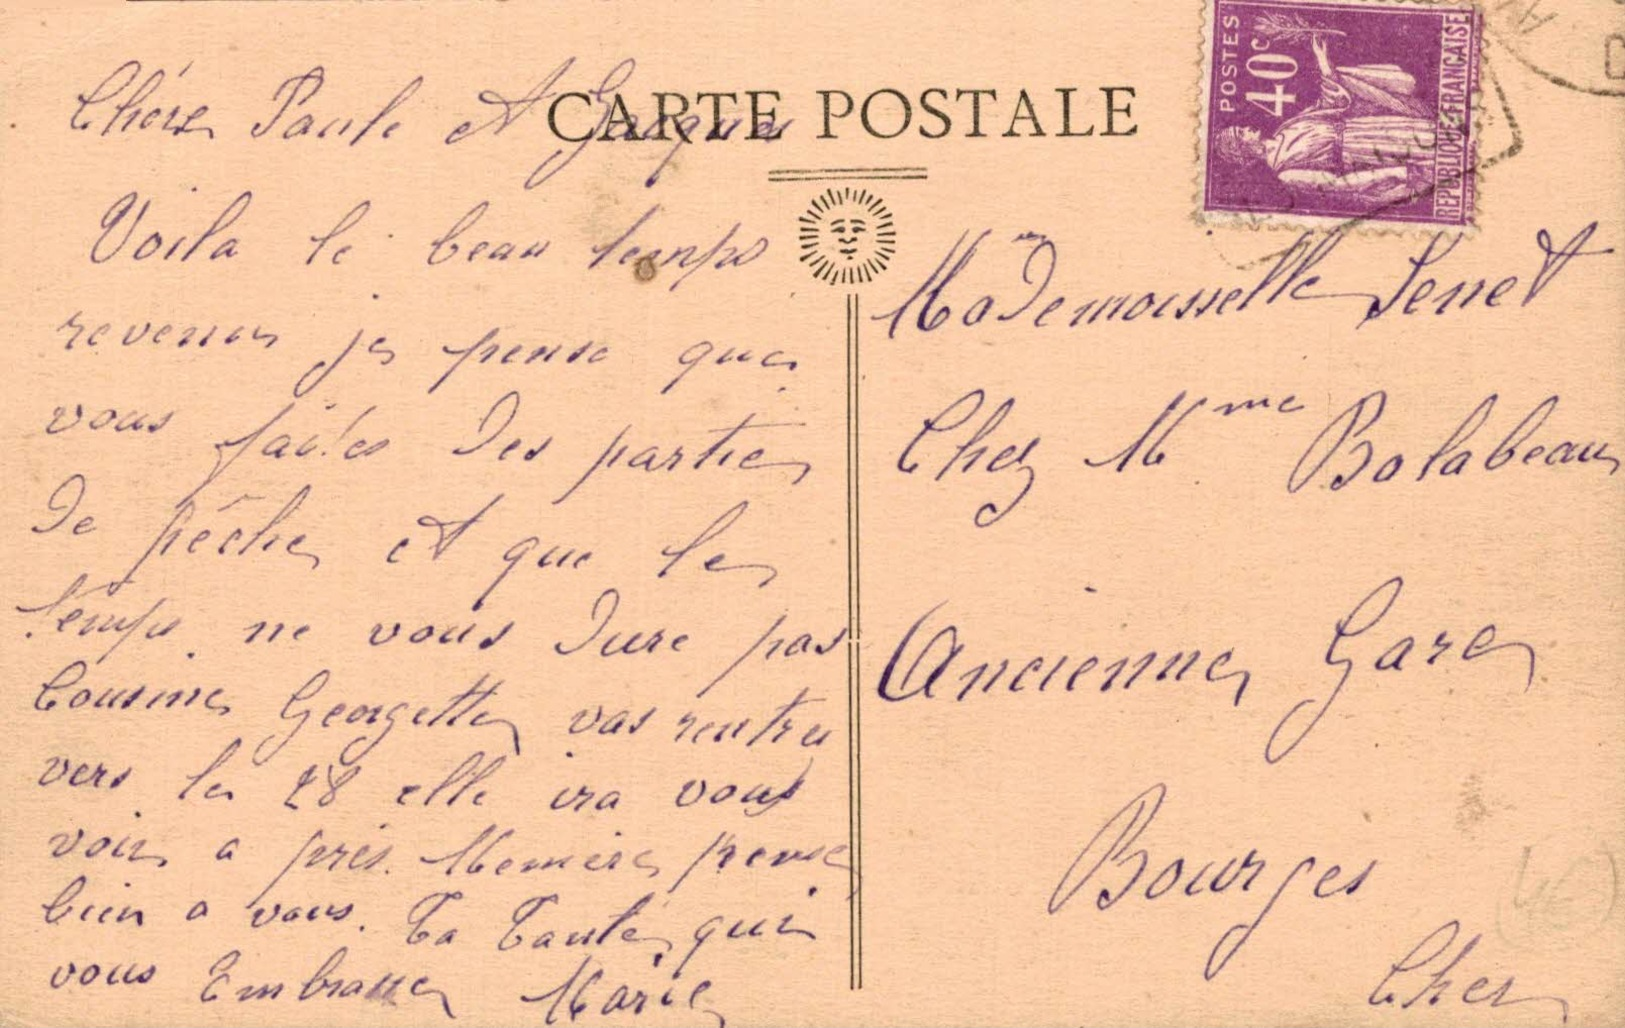 CARTE POSTALE
POSTES
40c
REPUBLIQUE FRANÇAISE
Chère Paule et Jacques
Voila le beau temps
revenu je pense que
vous faites des partie
de pêche et que le
temps ne vous dure pas
Cousine Georgette vas rentrer
vers le 28 elle ira vous
voir a près. Memère pense
bien a vous. Ta Tante qui
vous Embrasse Marie
Mademoisselle Jenet
Chez Mme Balabeau
Ancienne Gare
Bourges
Cher
4€